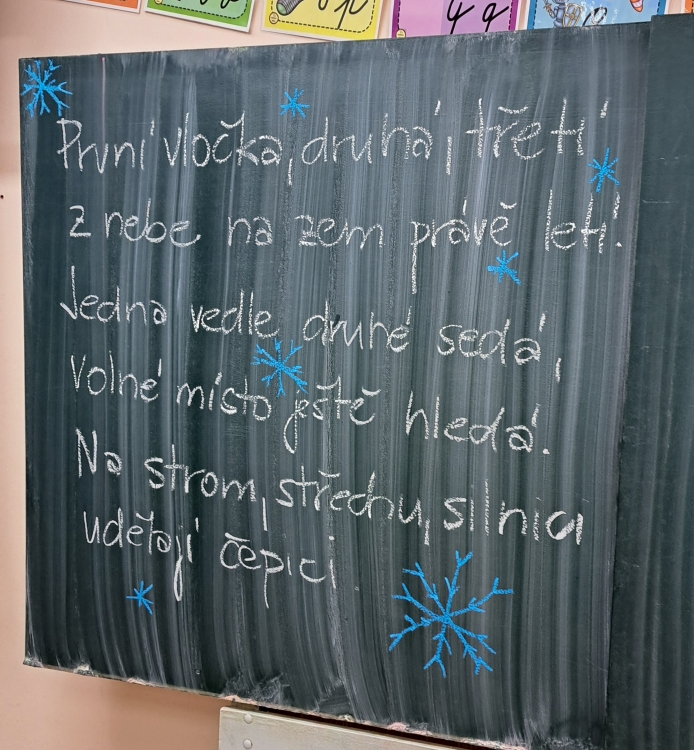 První vločka, druhá, třetí
z nebe na zem právě letí.
Jedna vedle druhé sedá,
volné místo ještě hledá.
Na strom, střechu,
udělají čepici